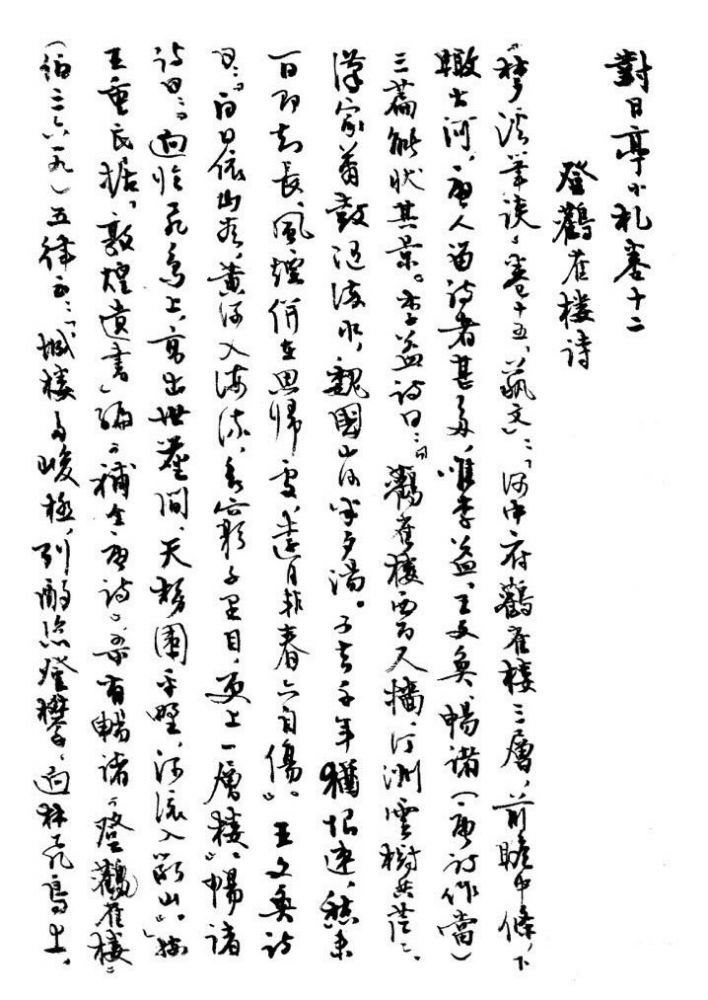 對日亭小札卷十二
登鸛雀樓詩
《夢溪筆談》卷十五，藝文：「河中府鸛雀樓三層，前瞻中條，下
瞰大河，唐人留詩者甚多，唯李益、王文奐、暢諸（唐詩作當）
三篇能狀其景。李益詩曰：『鸛雀樓西百尺牆，汀洲雲樹共茫茫。
漢家簫鼓隨流水，魏國山河半夕陽。事去千年猶恨速，愁來
一日即知長。風煙併在思歸處，遠目非春亦自傷』。王文奐詩
曰：『白日依山盡，黃河入海流，欲窮千里目，更上一層樓』。暢諸
詩曰：『迥臨飛鳥上，高出世塵間，天勢圍平野，河流入斷山』。」
王重民據《敦煌遺書》編《補全唐詩》，有暢諸《登鸛雀樓》
（伯三六一九）五律云：「城樓多峻極，列酌恣登攀，迥林飛鳥上，